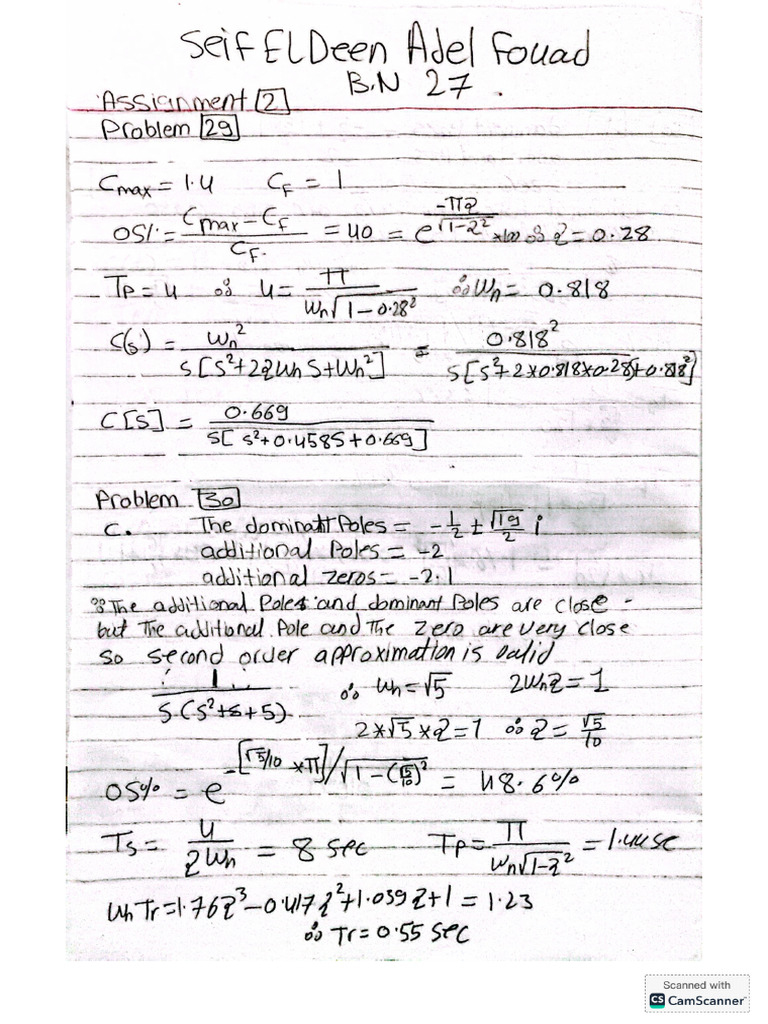 Seif ElDeen Adel Fouad
B.N 27.
Assignment [2]
Problem [29]
Cmax = 1.4    CF = 1
OS% = (Cmax − CF)/CF = 40 = e^(−πζ/√(1−ζ²)) ×100 ∴ ζ = 0.28
Tp = 4 ∴ 4 = π/(Wn√(1−0.28²)) ∴ Wn = 0.818
C(s) = Wn²/(S[S²+2ζWnS+Wn²]) = 0.818²/(S[S²+2×0.818×0.28S+0.818²])
C[S] = 0.669/(S[S²+0.458S+0.669])
Problem [30]
C. The dominant Poles = −1/2 ± (√19/2) i
additional Poles = −2
additional zeros = −2.1
∵ The additional Poles and dominant Poles are close
but The additional Pole and The Zero are very close
so second order approximation is valid
1/(S(S²+S+5)) ∴ Wn = √5    2Wnζ = 1
2×√5×ζ = 1 ∴ ζ = √5/10
OS% = e^(−[√5/10 ×π]/√(1−(√5/10)²)) = 48.6%
Ts = 4/(ζWn) = 8 sec    Tp = π/(Wn√(1−ζ²)) = 1.44 sc
WnTr = 1.76ζ³ − 0.417ζ² + 1.039ζ + 1 = 1.23
∴ Tr = 0.55 sec
Scanned with
CS CamScanner